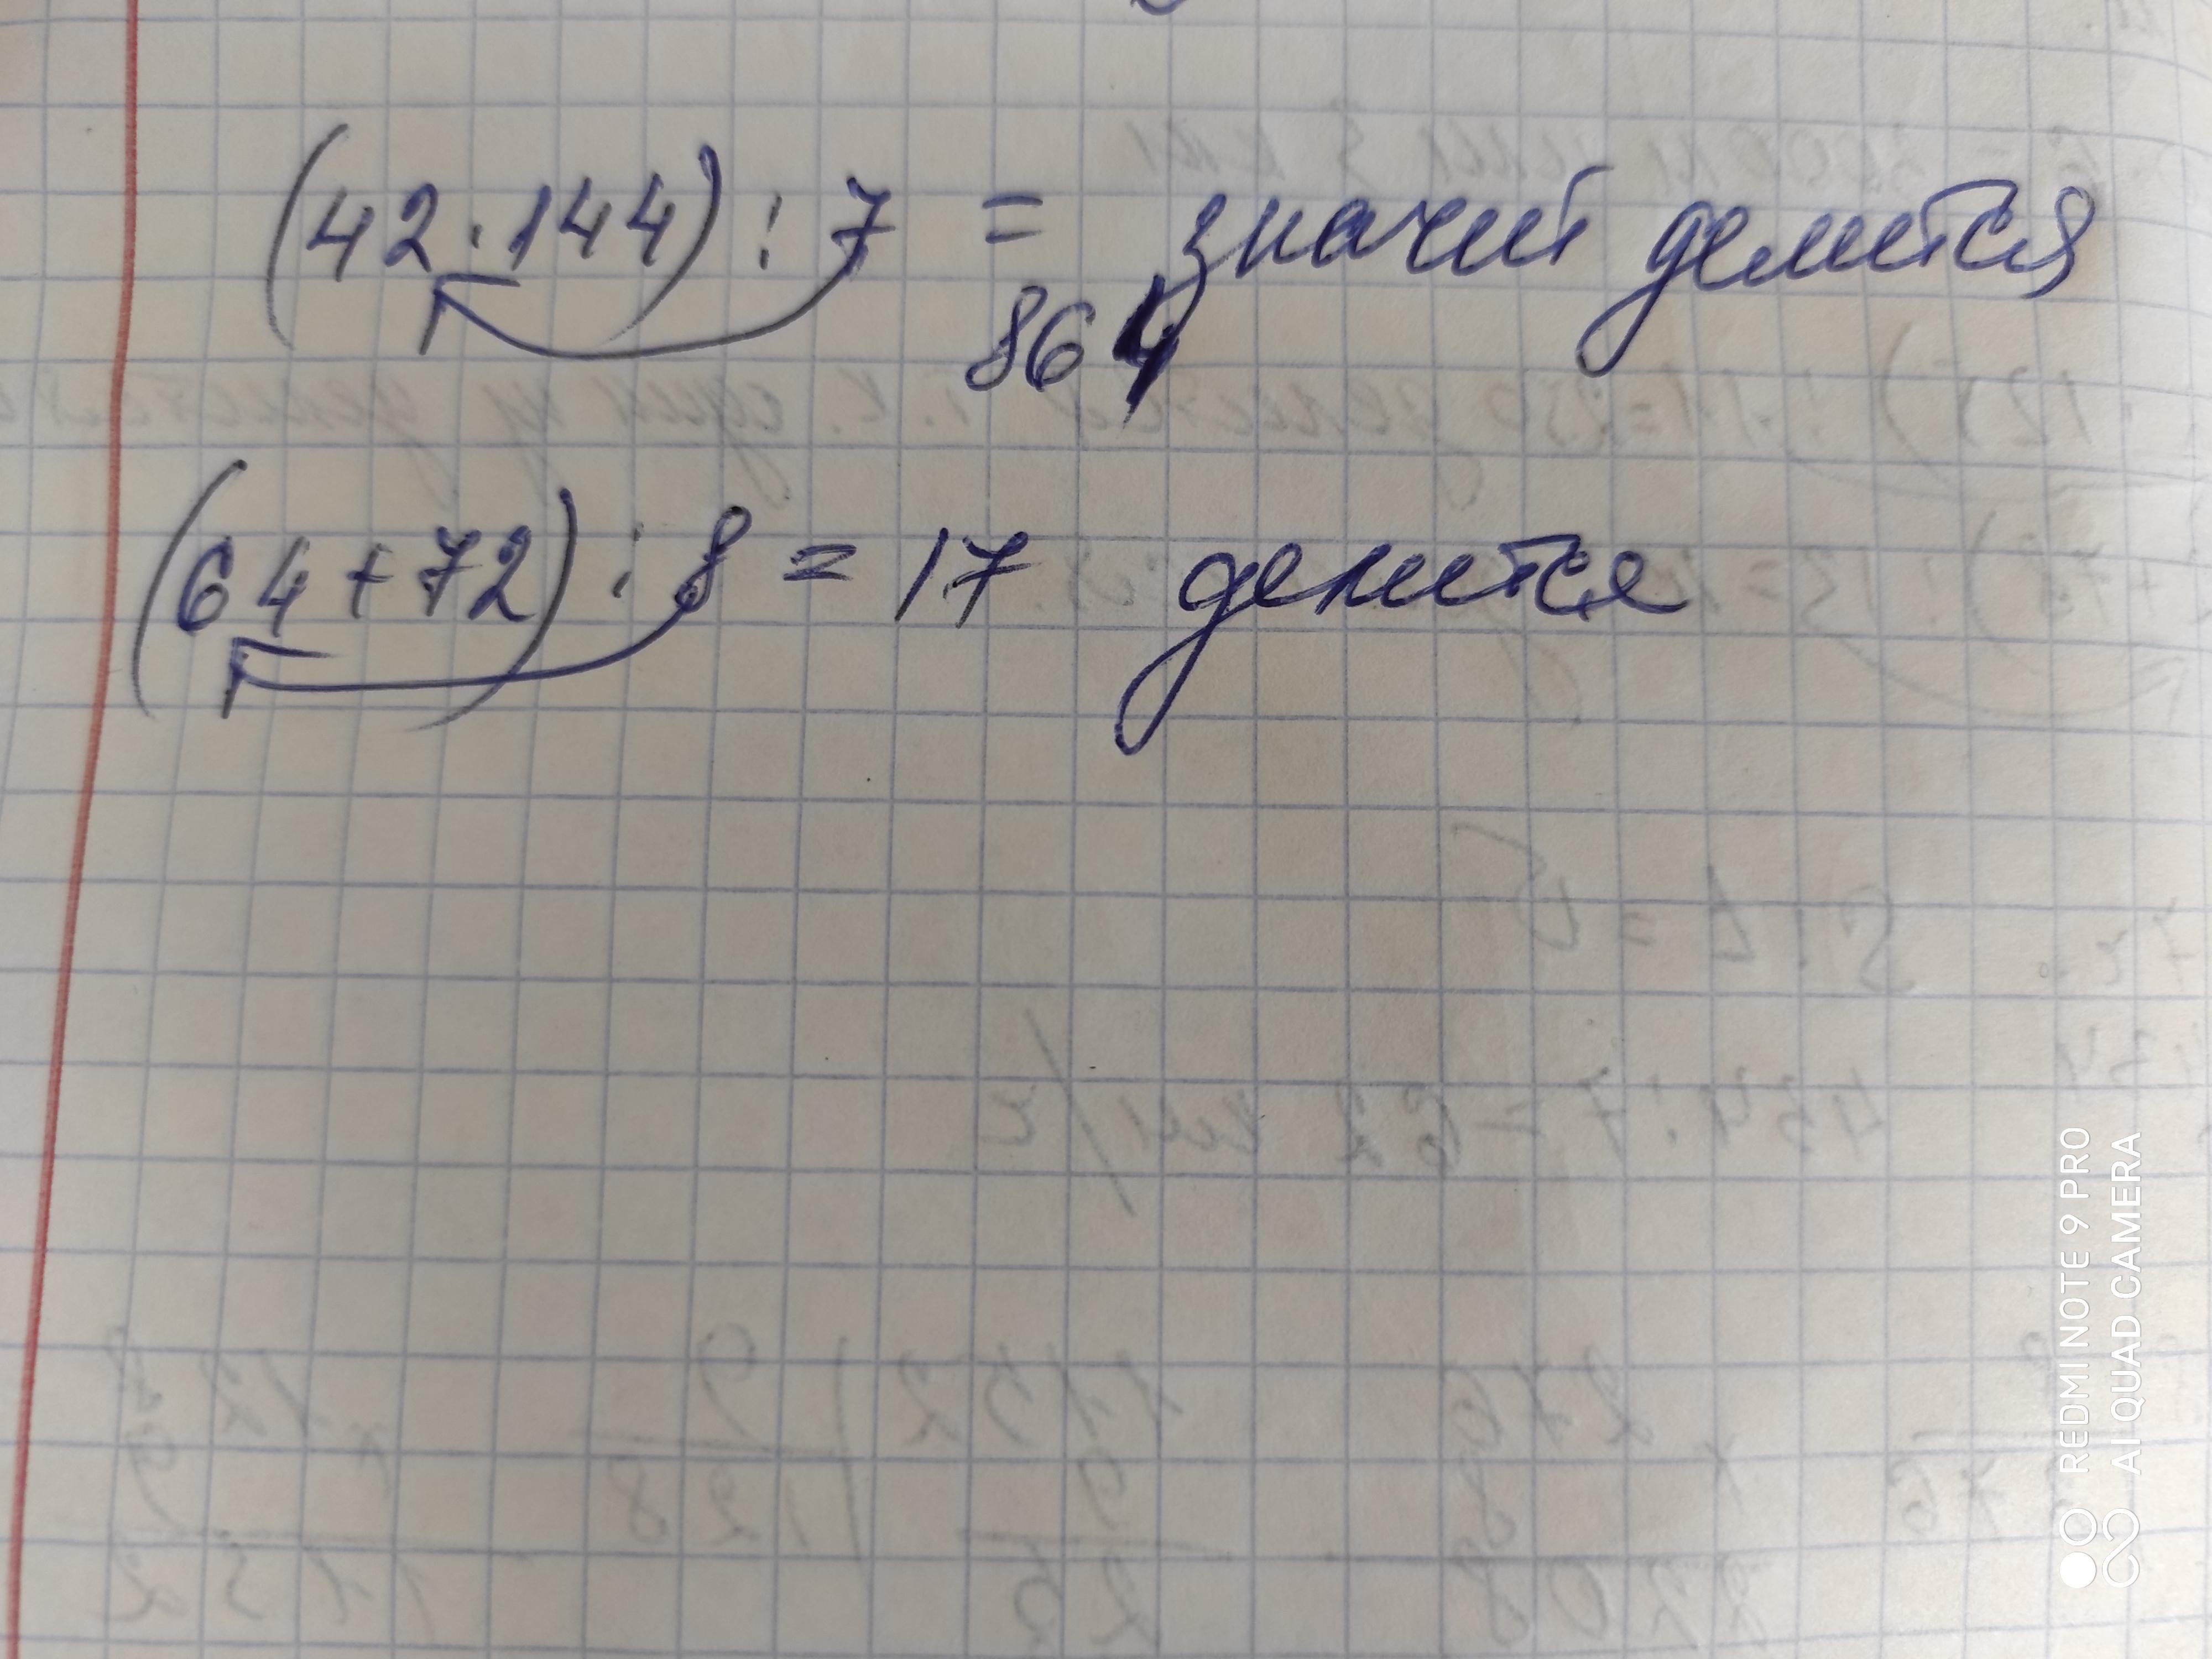 (42·144) : 7 = значит делится
864
(64+72) : 8 = 17 делится
REDMI NOTE 9 PRO
AI QUAD CAMERA